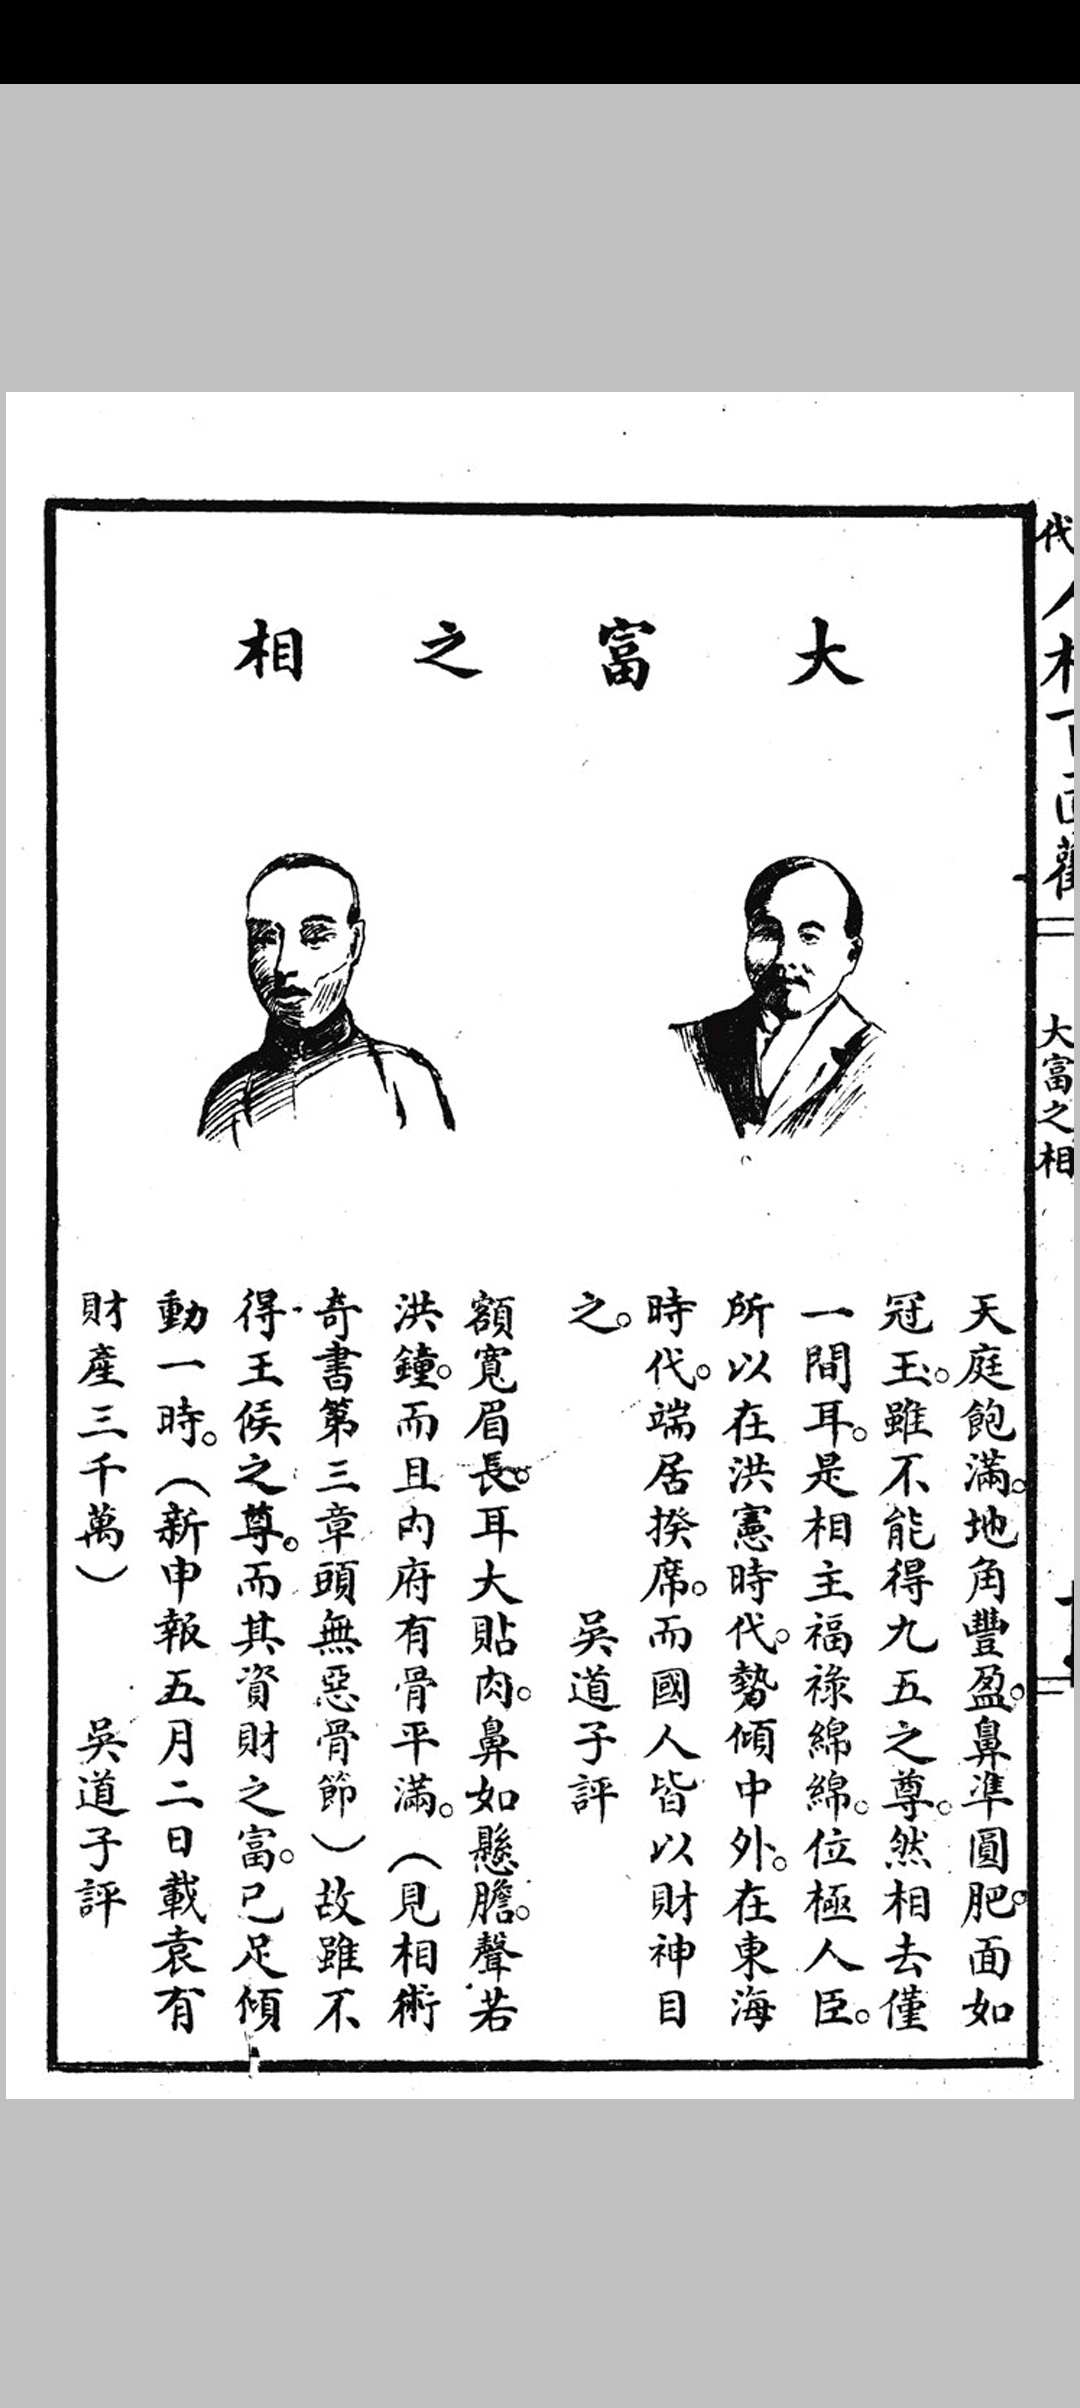 大富之相
大富之相
天庭飽滿。地角豐盈。鼻準圓肥。面如
冠玉。雖不能得九五之尊。然相去僅
一間耳。是相主福祿綿綿。位極人臣。
所以在洪憲時代。勢傾中外。在東海
時代。端居揆席。而國人皆以財神目
之。　吳道子評
額寬眉長。耳大貼肉。鼻如懸膽。聲若
洪鐘。而且內府有骨平滿。（見相術
奇書第三章頭無惡骨節）故雖不
得王侯之尊。而其資財之富。已足傾
動一時。（新申報五月二日載袁有
財產三千萬）　吳道子評